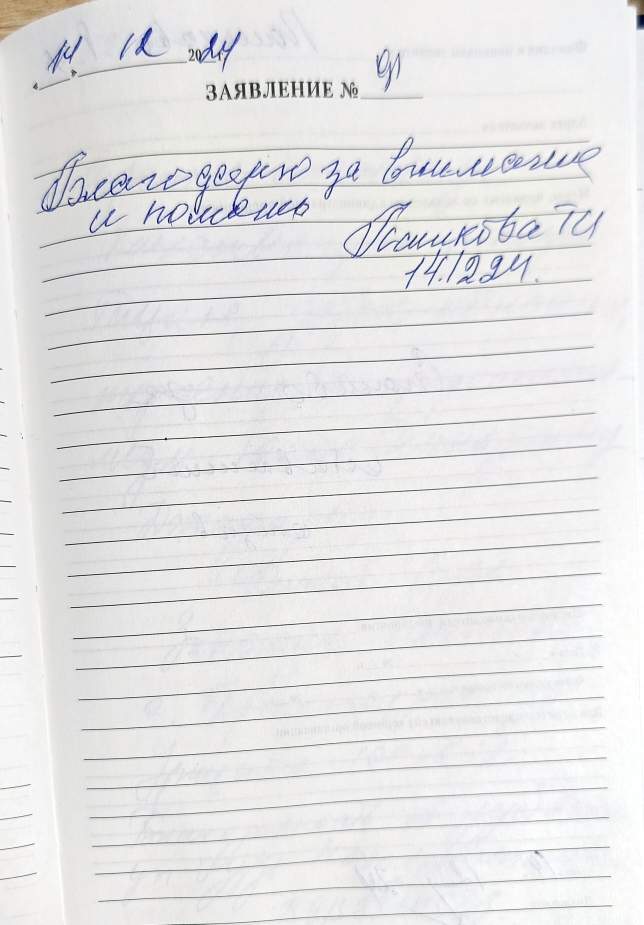 «14» 12 2024
ЗАЯВЛЕНИЕ № 91
Благодарю за внимание
и помощь
Пашкова ТИ
14.12.24.